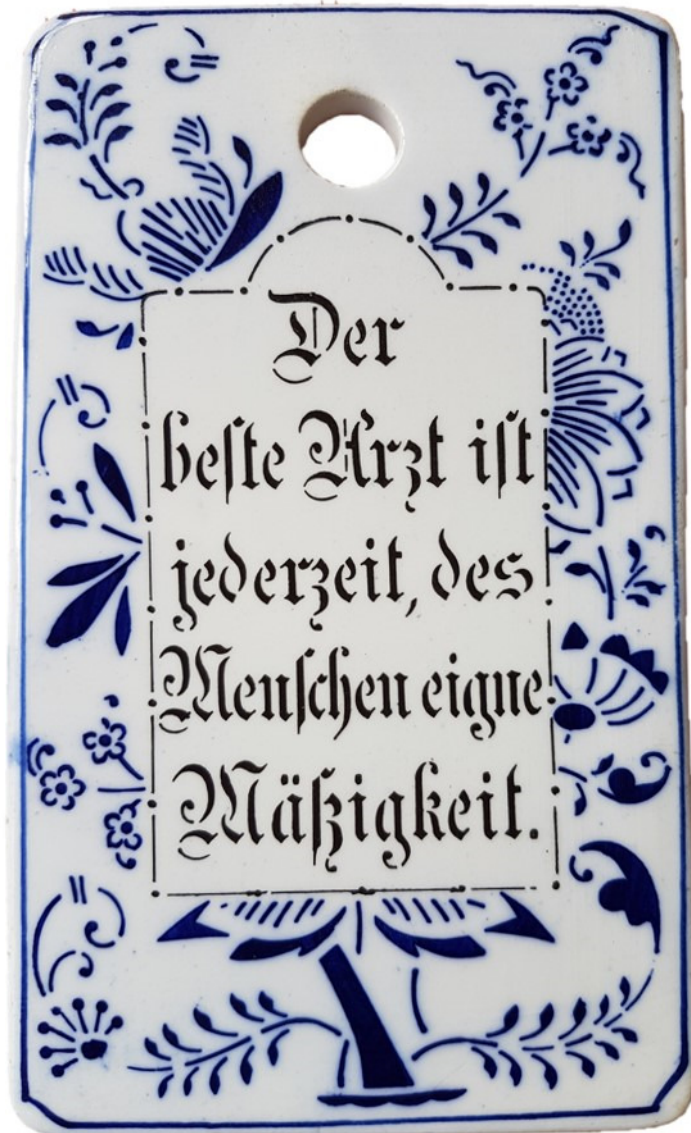 Der
beſte Arzt iſt
jederzeit, des
Menſchen eigne
Mäßigkeit.